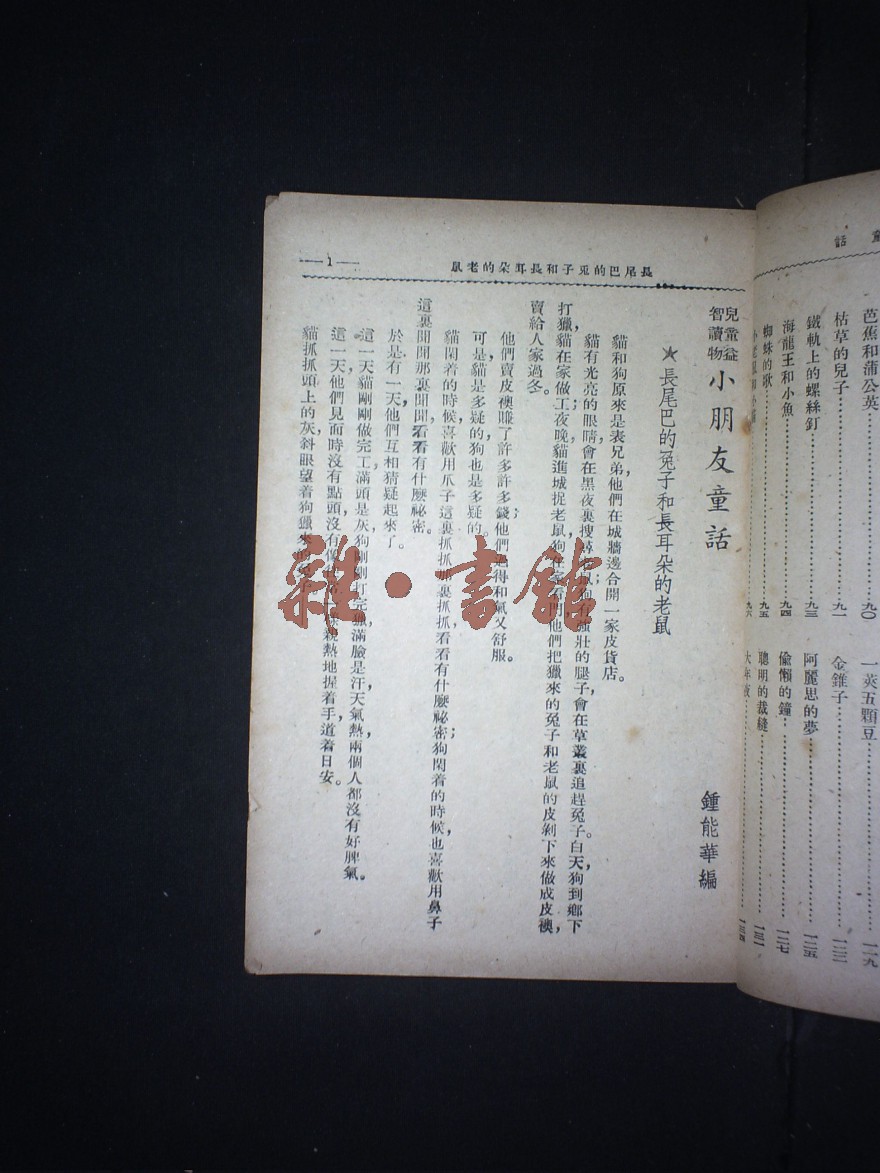 童話
芭蕉和蒲公英……九〇
枯草的兒子……九一
鐵軌上的螺絲釘……九三
海龍王和小魚……九四
蜘蛛的歌……九五
九六
一莢五顆豆
金錐子
阿麗思的夢……一二五
偷懶的鐘……一二七
聰明的裁縫……一三一
大年夜……一三四
長尾巴的兎子和長耳朵的老鼠
—1—
兒童益智讀物 小朋友童話
鍾能華編
★長尾巴的兔子和長耳朵的老鼠
貓和狗原來是表兄弟,他們在城牆邊合開一家皮貨店。
貓有光亮的眼睛,會在黑夜裏搜尋老鼠;狗有強壯的腿子,會在草叢裏追趕兔子。白天,狗到鄉下
打獵,貓在家做工;夜晚,貓進城捉老鼠,狗在家看門。他們把獵來的兔子和老鼠的皮剝下來做成皮襖,
賣給人家過冬。
他們賣皮襖賺了許多許多錢,他們過得和氣又舒服。
可是,貓是多疑的,狗也是多疑的。
貓閑着的時候,喜歡用爪子這裏抓抓,那裏抓抓,看看有什麼祕密;狗閑着的時候,也喜歡用鼻子
這裏聞聞,那裏聞聞,看看有什麼祕密。
於是有一天,他們互相猜疑起來了。
這一天,貓剛剛做完工,滿頭是灰,狗剛剛打完獵,滿臉是汗,天氣熱,兩個人都沒有好脾氣。
這一天,他們見面時沒有點頭,沒有像 親熱地握着手,道着日安。
貓抓抓頭上的灰,斜眼望着狗獵來的
雜·書館